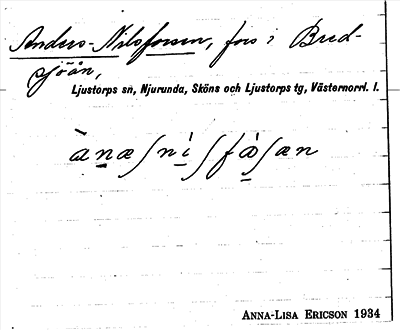 Anders-Nilsforsen, fors i Bred-
sjöån,
Ljustorps sn, Njurunda, Sköns och Ljustorps tg, Västernorrl. l.
ànæʃníʃfæ̀ʃæn
ANNA-LISA ERICSON 1934